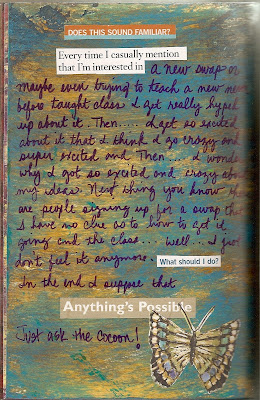 DOES THIS SOUND FAMILIAR?
Every time I casually mention
that I'm interested in a new swap or
maybe even trying to teach a new never
before taught class I get really hyped
up about it. Then.... I get so excited
about it that I think I go crazy and
super excited and Then.... I wonder
why I got so excited and crazy about
my ideas. Next thing you know
are people signing up for a swap that
I have no clue as to how to get it
going and the class... well.. I just
don't feel it anymore. What should I do?
In the end I suppose that
Anything's Possible
Just ask the Cocoon!